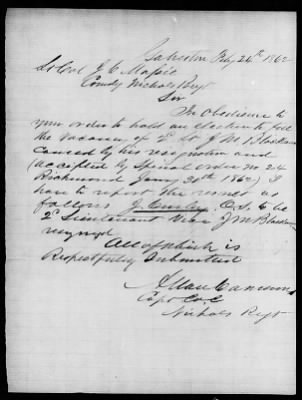 Galveston Feby 24th 1862
Lt Col J C Massie
Comdg Nichols Regt
Sir
In obedience to
your order to hold an election to fill
the vacancy of 2 Lt J M Blackburn
caused by his resignation and
(accepted by Special order no 24
Richmond Jany 30th 1862) I
have to report the result as
follows J O.S. to be
2d Lieutenant Vice J M Blackburn
resigned
All of which is
Respectfully Submitted
Capt Co C
Nichols Regt